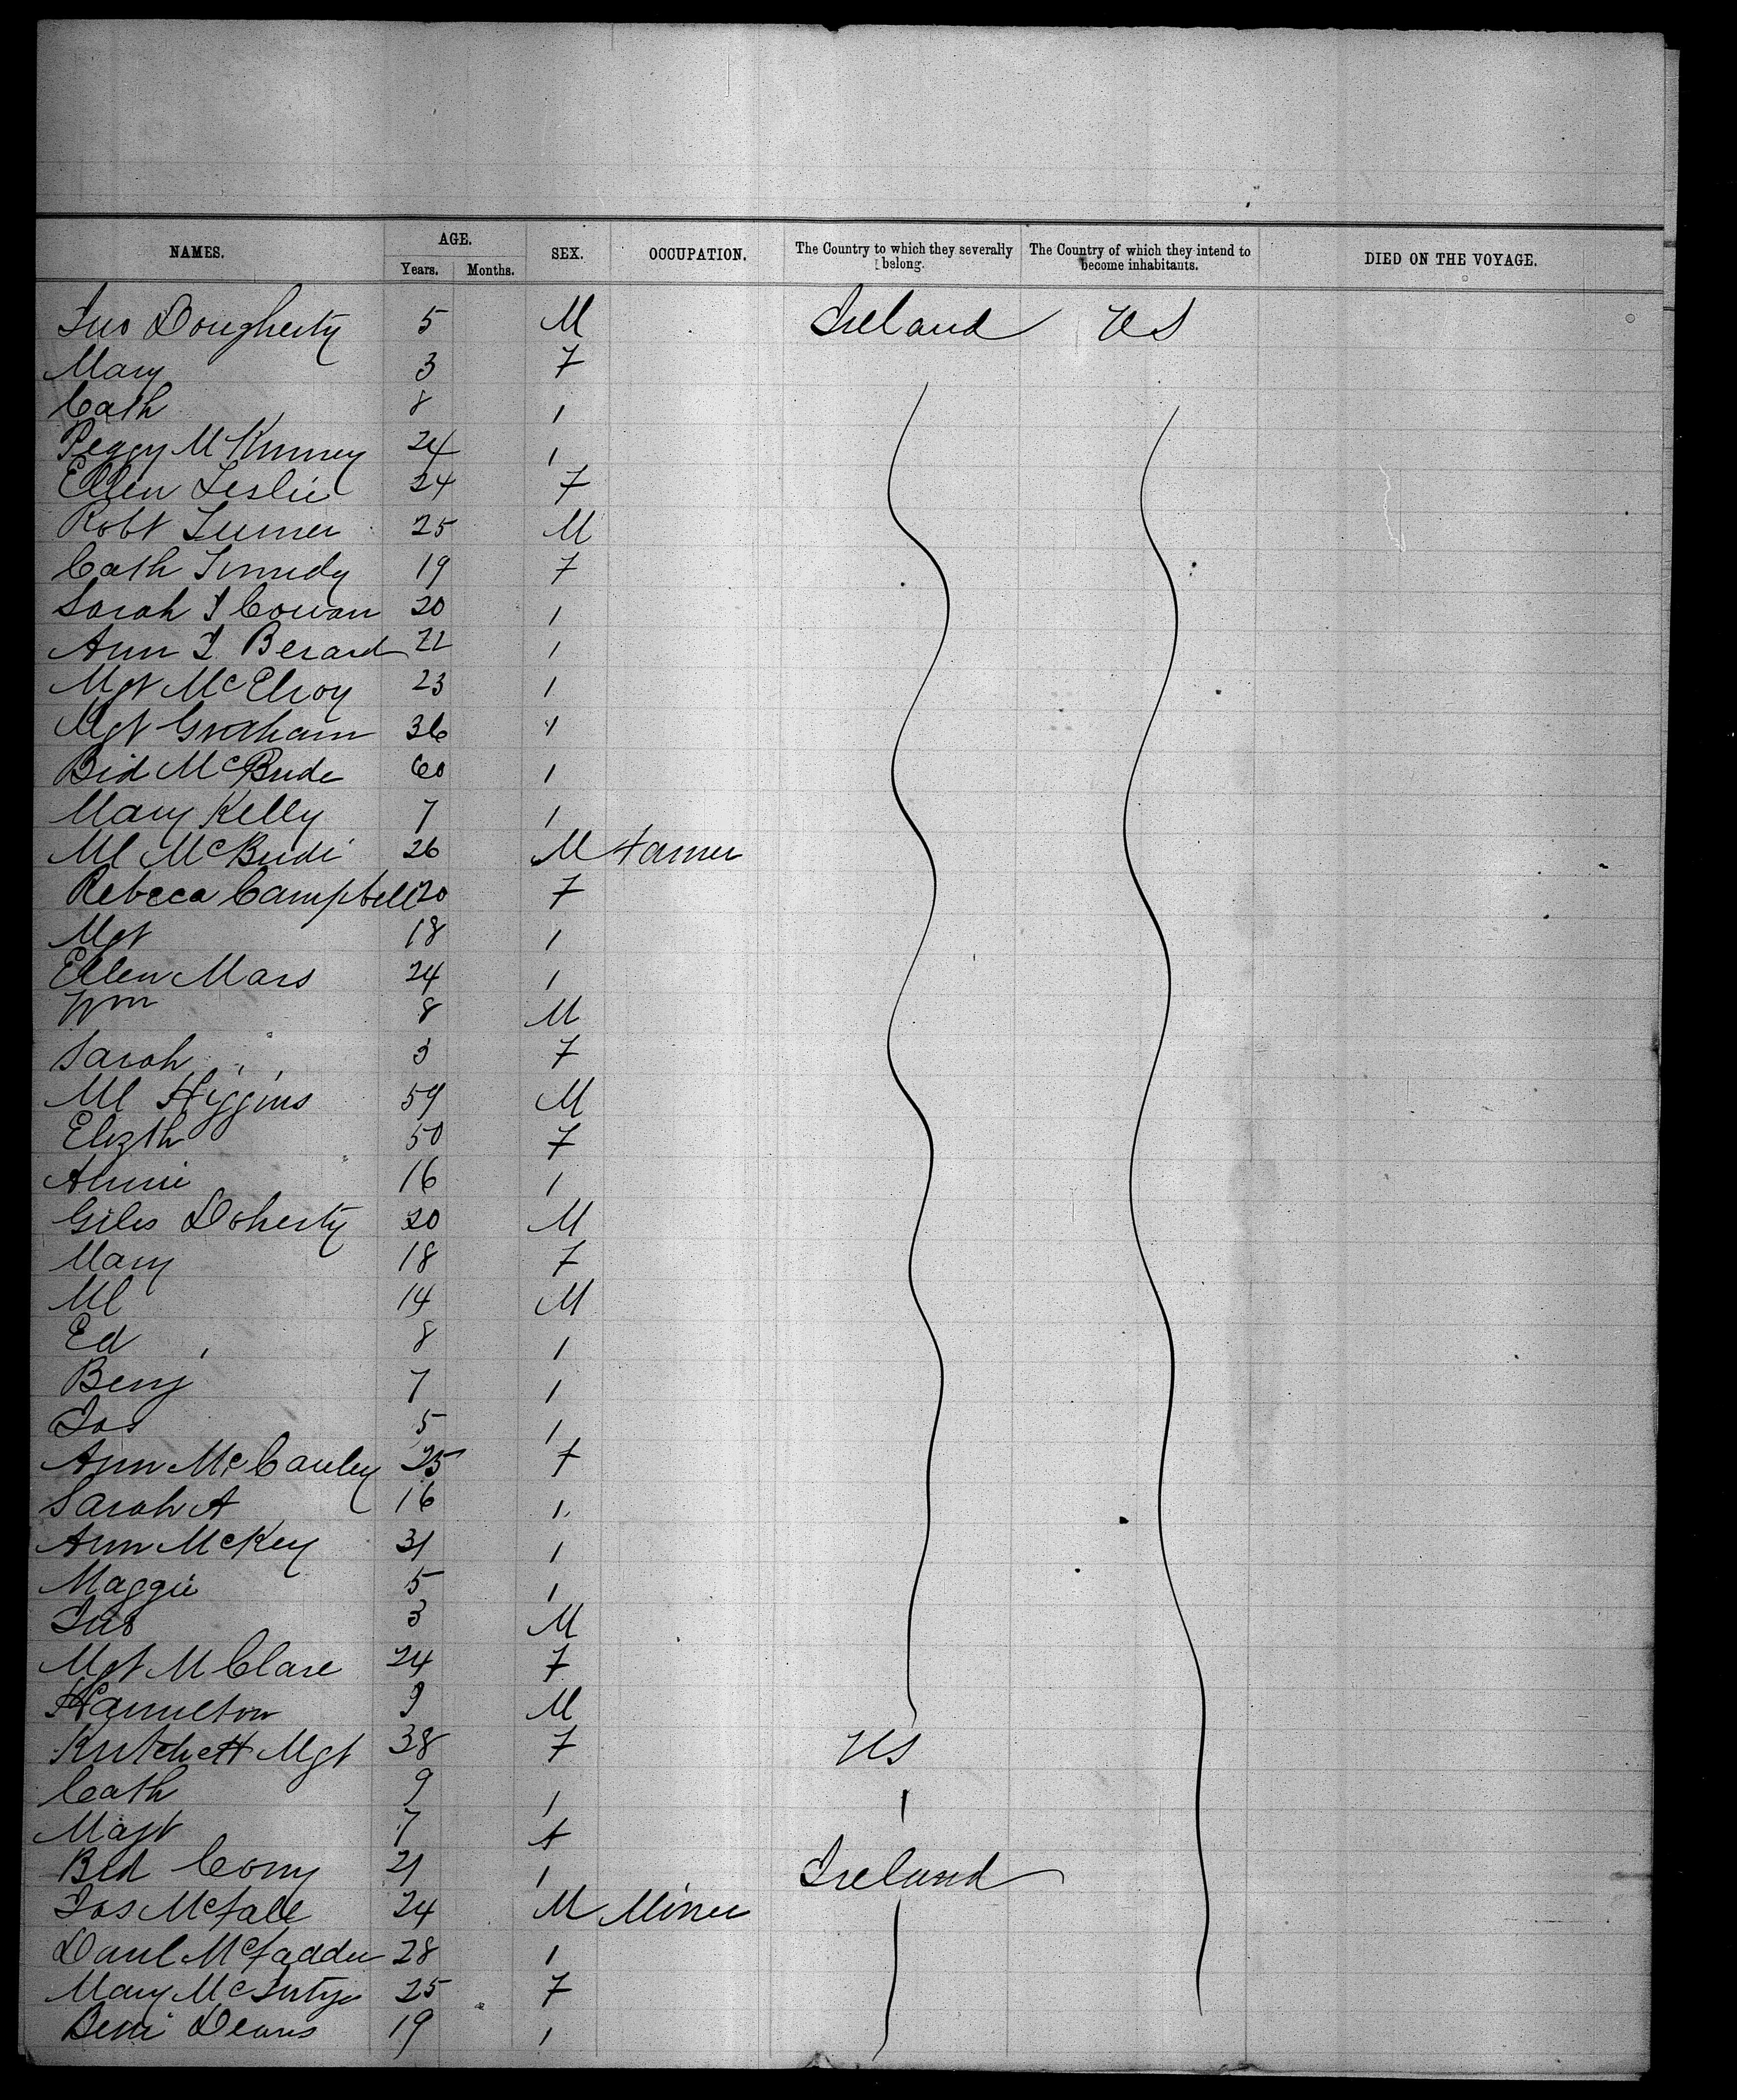 NAMES. AGE. SEX. OCCUPATION. The Country to which they severally belong. The Country of which they intend to become inhabitants. DIED ON THE VOYAGE.
Years. Months.
Jno Dougherty 5 M Ireland US
Mary 3 F
Cath 8 "
Peggy McKinney 24 "
Ellen Leslie 24 F
Robt Turner 25 M
Cath 19 F
Sarah J Cowan 20 "
Ann J Berard 22 "
Mgt McElroy 23 "
Mgt Graham 36 "
Bid McBride 60 "
Mary Kelly 7 "
Ml McBride 26 M Farmer
Rebecca Campbell 20 F
Mgt 18 "
Ellen Mars 24 "
Wm 8 M
Sarah 3 F
Ml Higgins 59 M
Elizth 50 F
Annie 16 "
Giles Doherty 20 M
Mary 18 F
Ml 14 M
Ed 8 "
Benj 7 "
Jos 5 "
Ann McCauley 25 F
Sarah A 16 "
Ann McKey 31 "
Maggie 5 "
Jno 3 M
Mgt McClare 24 F
Hamilton 9 M
Mgt 38 F US
Cath 9 " "
Magt 7 F
Bid Cony 21 " Ireland
Jos McFall 24 M Miner
Danl McFadden 28 "
Mary McIntyre 25 F
Deans 19 "